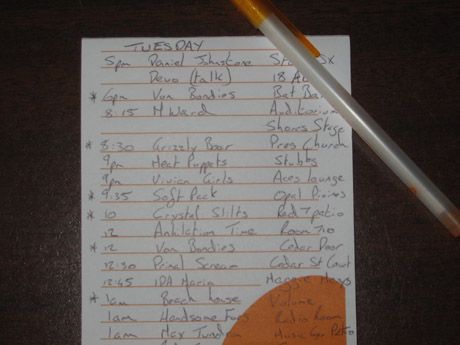 TUESDAY
5pm Daniel Johnstone
Devo (talk) 18
* 6pm Von Bondies Bat
8:15 M Ward Auditorium
Shores Stage
* 8:30 Grizzly Bear Pres Church
9pm Meat Puppets Stubbs
9pm Vivian Girls Aces Lounge
* 9:35 Soft Pack Opal
* 10 Crystal Stilts Red 7 patio
12 Time Room 710
* 12 Von Bondies Cedar Door
12:30 Primal Scream Cedar St Court
12:45 IDA Maria Maggie Mays
* 1am Beach house Volume
1am Handsome Furs Radio Room
1am Max Tundra Patio